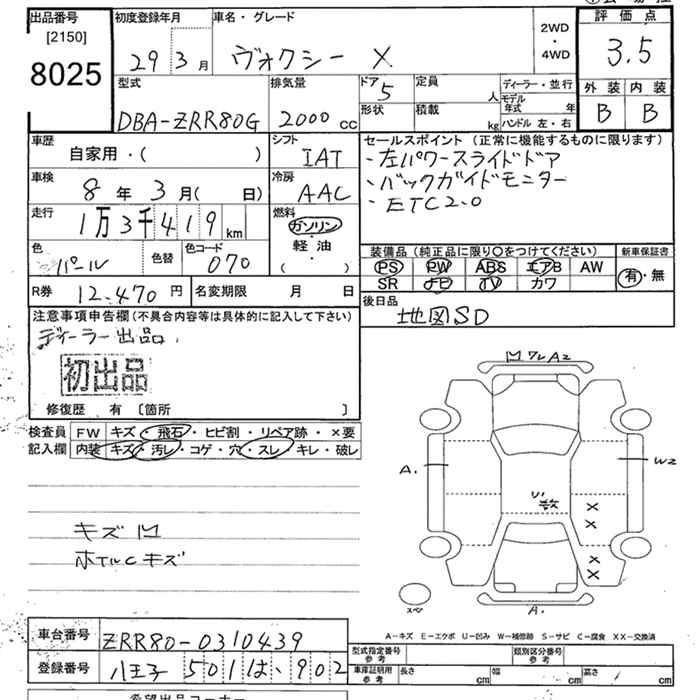 出品番号
[2150]
8025
初度登録年月
29 3月
車名・グレード
ヴォクシー X
2WD
・
4WD
評価点
3.5
外装 内装
B B
型式
DBA-ZRR80G
排気量
2000 CC
ドア
5
定員
人
形状
積載
kg
ディーラー・並行
モデル年式 年
ハンドル 左・右
車歴
自家用・( )
シフト
IAT
セールスポイント (正常に機能するものに限ります)
・左パワースライドドア
・バックガイドモニター
・ETC2.0
車検
8年 3月( 日)
冷房
AAC
走行
1万3千419km
燃料
ガソリン
・
軽油
・
( )
色
パール
色替
色コード
070
装備品 (純正品に限り○をつけてください)
新車保証書
PS PW ABS エアB AW
SR ナビ TV カワ
有・無
R券 12,470円
名変期限 月 日
後日品
地図SD
注意事項申告欄 (不具合内容等は具体的に記入して下さい)
ディーラー出品.
初出品
修復歴 有 〔箇所 〕
検査員 FW キズ・飛石・ヒビ割・リペア跡・×要
記入欄 内装 キズ・汚レ・コゲ・穴・スレ・キレ・破レ
キズ
ホイルCキズ
A.
W2
× ×
× ×
A.
スペ
A-キズ E-エクボ U-凹み W-補修跡 S-サビ C-腐食 XX-交換済
車台番号 ZRR80-0310439
登録番号 八王子 501 は・902
型式指定番号
参考
類別区分番号
参考
車庫証明用
参考
長さ cm 幅 cm 高さ cm
希望出品コーナー